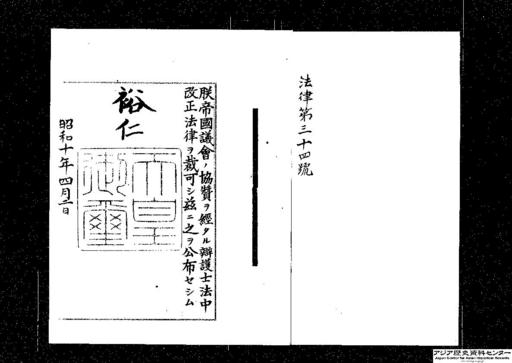 法律第三十四號
朕帝國議會ノ協贊ヲ經タル辯護士法中
改正法律ヲ裁可シ茲ニ之ヲ公布セシム
裕仁
天皇
御璽
昭和十年四月一日
アジア歴史資料センター
Japan Center for Asian Historical Records